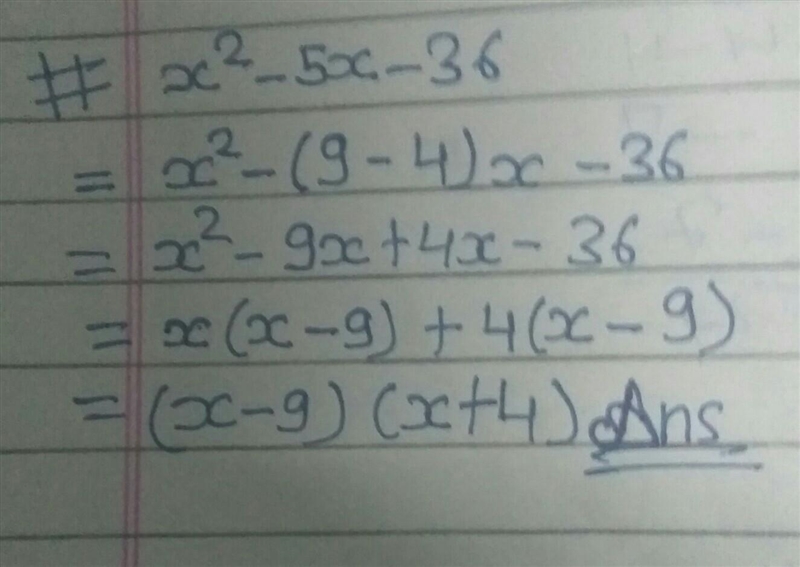 # x² - 5x - 36
= x² - (9 - 4)x - 36
= x² - 9x + 4x - 36
= x(x - 9) + 4(x - 9)
= (x - 9) (x + 4) Ans